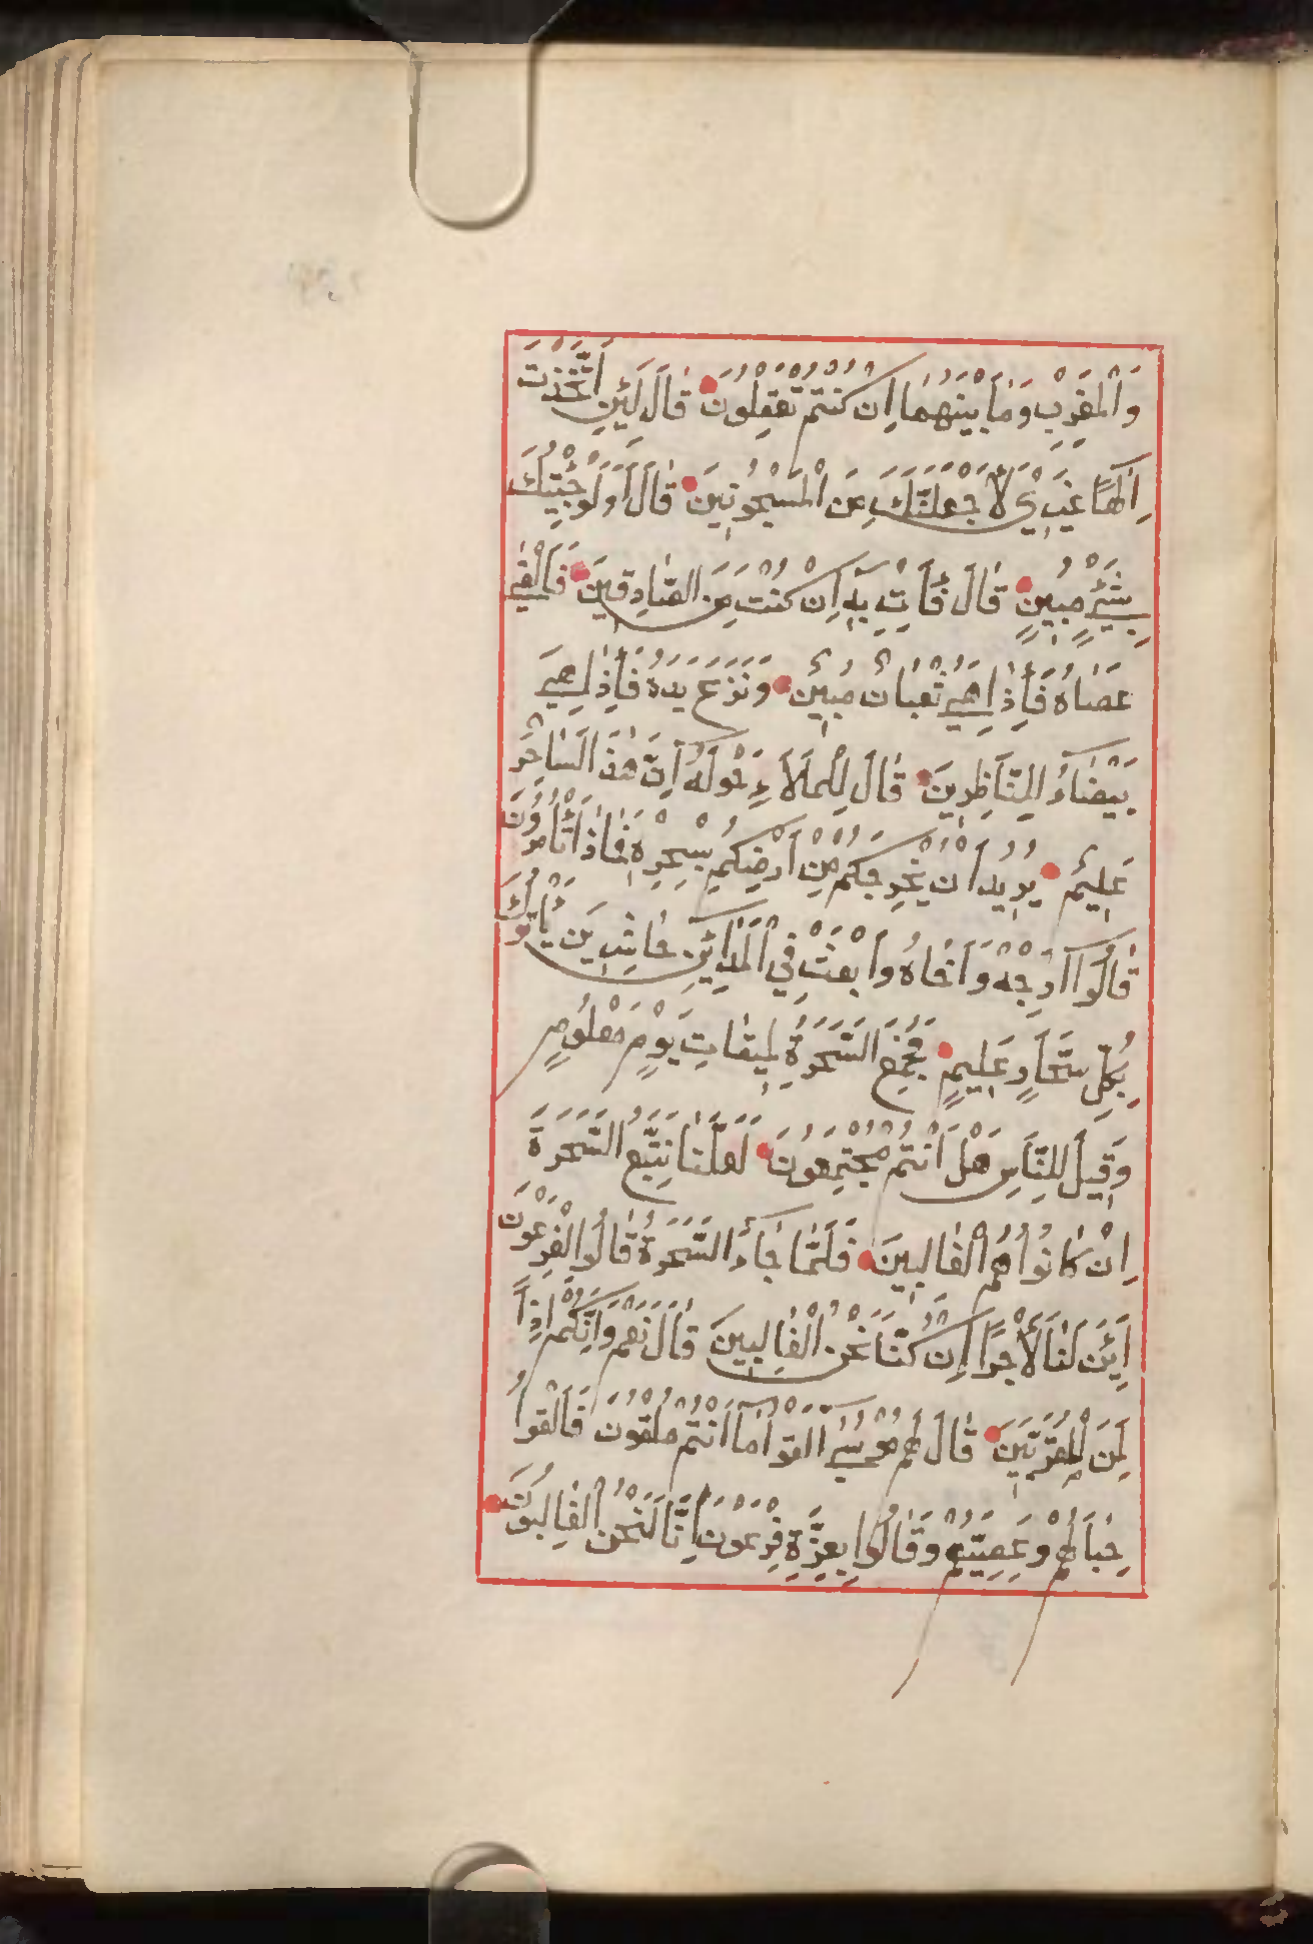 وَالْمَغْرِبِ وَمَا بَيْنَهُمَا اِنْ كُنْتُمْ تَعْقِلُونَ قَالَ لَئِنِ اتَّخَذْتَ
اِلٰهًا غَيْرِي لَأَجْعَلَنَّكَ مِنَ الْمَسْجُونِينَ قَالَ أَوَلَوْ جِئْتُكَ
بِشَيْءٍ مُبِينٍ قَالَ فَأْتِ بِهٖ اِنْ كُنْتَ مِنَ الصَّادِقِينَ فَاَلْقٰى
عَصَاهُ فَاِذَا هِيَ ثُعْبَانٌ مُبِينٌ وَنَزَعَ يَدَهُ فَاِذَا هِيَ
بَيْضَاءُ لِلنَّاظِرِينَ قَالَ لِلْمَلَأِ حَوْلَهُ اِنَّ هٰذَا لَسَاحِرٌ
عَلِيمٌ يُرِيدُ اَنْ يُخْرِجَكُمْ مِنْ اَرْضِكُمْ بِسِحْرِهِ فَمَاذَا تَأْمُرُونَ
قَالُوا اَرْجِهْ وَاَخَاهُ وَابْعَثْ فِي الْمَدَائِنِ حَاشِرِينَ يَأْتُوكَ
بِكُلِّ سَحَّارٍ عَلِيمٍ فَجُمِعَ السَّحَرَةُ لِمِيقَاتِ يَوْمٍ مَعْلُومٍ
وَقِيلَ لِلنَّاسِ هَلْ اَنْتُمْ مُجْتَمِعُونَ لَعَلَّنَا نَتَّبِعُ السَّحَرَةَ
اِنْ كَانُوا هُمُ الْغَالِبِينَ فَلَمَّا جَاءَ السَّحَرَةُ قَالُوا لِفِرْعَوْنَ
اَئِنَّ لَنَا لَأَجْرًا اِنْ كُنَّا نَحْنُ الْغَالِبِينَ قَالَ نَعَمْ وَاِنَّكُمْ اِذًا
لَمِنَ الْمُقَرَّبِينَ قَالَ لَهُمْ مُوسٰى اَلْقُوا مَا اَنْتُمْ مُلْقُونَ فَاَلْقَوْا
حِبَالَهُمْ وَعِصِيَّهُمْ وَقَالُوا بِعِزَّةِ فِرْعَوْنَ اِنَّا لَنَحْنُ الْغَالِبُونَ